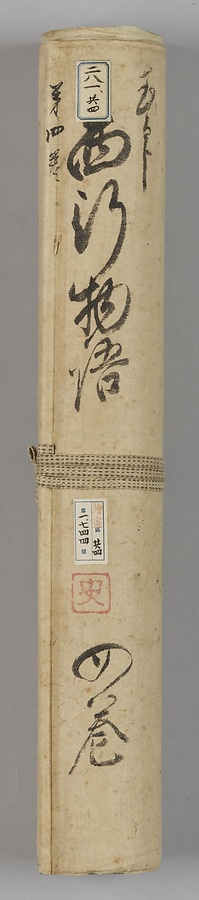 二八一、共四
西行物語
四巻
第四巻
共四
第一、七四四號
史